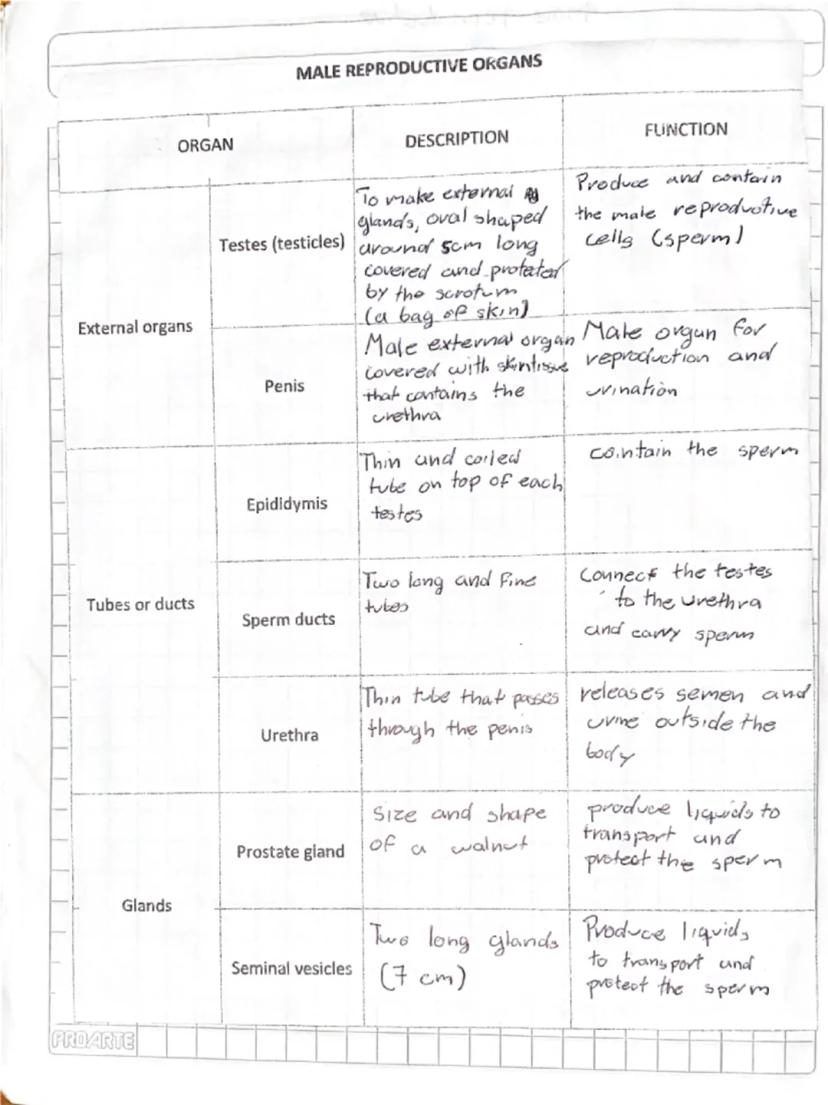 MALE REPRODUCTIVE ORGANS
ORGAN
DESCRIPTION
FUNCTION
External organs
Testes (testicles)
To make external
glands, oval shaped
around 5cm long
covered and protected
by the scrotum
(a bag of skin)
Produce and contain
the male reproductive
cells (sperm)
Penis
Male external organ
covered with skin tissue
that contains the
urethra
Male organ for
reproduction and
urination
Tubes or ducts
Epididymis
Thin and coiled
tube on top of each
testes
contain the sperm
Sperm ducts
Two long and fine
tubes
Connect the testes
to the urethra
and carry sperm
Urethra
Thin tube that passes
through the penis
releases semen and
urine outside the
body
Glands
Prostate gland
Size and shape
of a walnut
produce liquids to
transport and
protect the sperm
Seminal vesicles
Two long glands
(7 cm)
Produce liquids
to transport and
protect the sperm
PROARTE